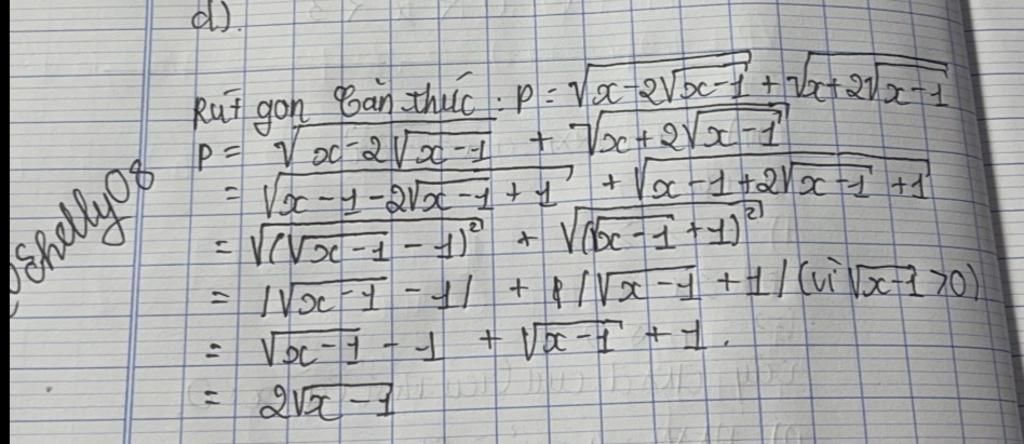 d).
Rút gọn căn thức: P = √(x-2√(x-1)) + √(x+2√(x-1))
P = √(x-2√(x-1)) + √(x+2√(x-1))
= √(x-1-2√(x-1)+1) + √(x-1+2√(x-1)+1)
= √((√(x-1)-1)²) + √((√(x-1)+1)²)
= |√(x-1)-1| + |√(x-1)+1| (vì √(x-1)>0)
= √(x-1)-1 + √(x-1)+1.
= 2√(x-1)
Shelly08